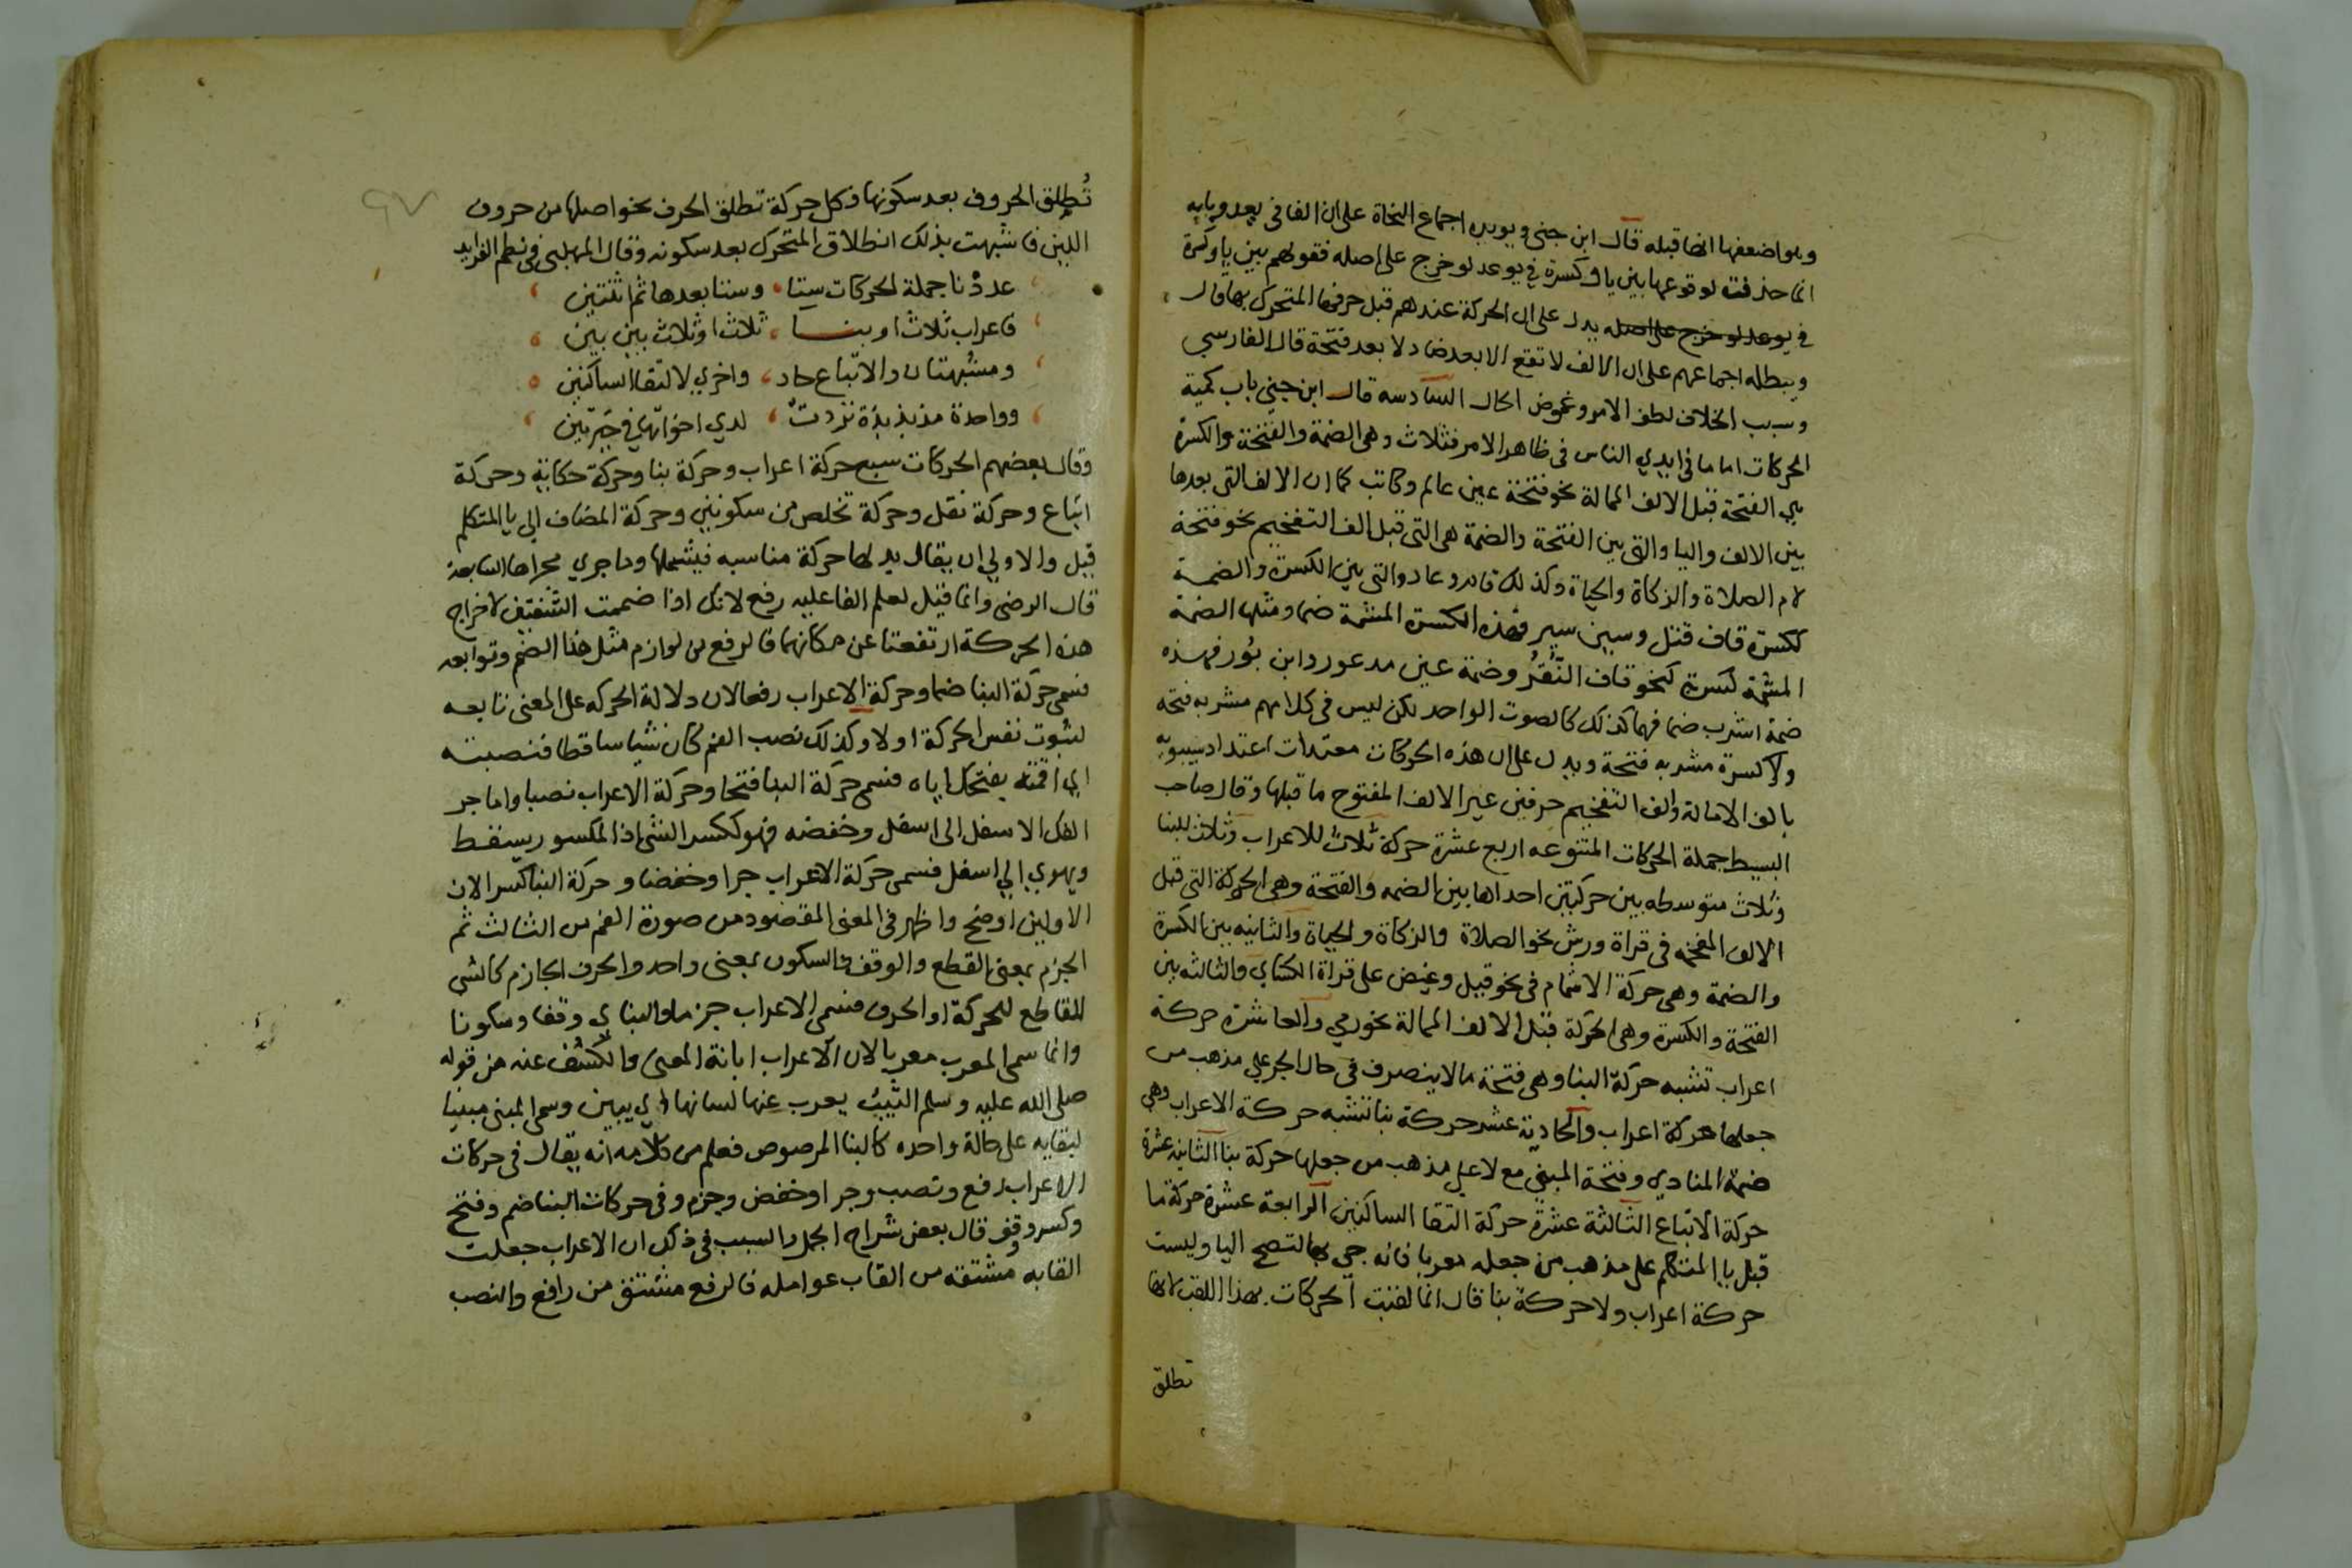 وهو اضعفها انها قبله قال ابن جني ويويده اجماع النحاة على ان الفا في يعد وبابه
انما حذفت لوقوعها بين يا وكسرة في يوعد لو خرج على اصله فقولهم بين يا وكسرة
في يوعد لو خرج على اصله يدل على ان الحركة عندهم قبل حرفها المتحرك بها قال
ويبطله اجماعهم على ان الالف لا تقع الا بعد فتحة قال الفارسي
وسبب الخلاف لطف الامر وغموض الحال السادسه قال ابن جني باب كمية
الحركات اما ما في ايدي الناس في ظاهر الامر فثلاث وهي الضمة والفتحة والكسرة
هي الفتحة قبل الالف الممالة نحو فتحة عين عالم وكاتب كما ان الالف التي بعدها
بين الالف واليا والتي بين الفتحة والضمة هي التي قبل الف التفخيم نحو فتحة
لام الصلاة والزكاة والحياة وكذلك قام وعاد والتي بين الكسرة والضمة
ككسرة قاف قيل وسين سير فهذه الكسرة المشمة ضما ومثلها الضمة
المشمة كسرة كنحو قاف النُّقُر وضمة عين مدعور وابن بُور فهذه
ضمة اشرب ضما فهما كذلك كالصوت الواحد لكن ليس في كلامهم مشربه فتحة
ولا كسرة مشربه فتحة ويدل على ان هذه الحركات معتدات اعتداد سيبويه
بالف الامالة والف التفخيم حرفين غير الالف المفتوح ما قبلها وقال صاحب
البسيط جملة الحركات المتنوعه اربع عشرة حركة ثلاث للاعراب وثلاث للبنا
وثلاث متوسطه بين حركتين احداها بين الضمه والفتحة وهي الحركة التي قبل
الالف المفخمه في قراة ورش نحو الصلاة والزكاة والحياة والثانيه بين الكسرة
والضمة وهي حركة الاشمام في نحو قيل وغيض على قراة الكساي والثالثه بين
الفتحة والكسرة وهي الحركة قبل الالف الممالة نحو رمي والعاشرة حركة
اعراب تشبه حركة البنا وهي فتحة ما لا ينصرف في حال الجر علي مذهب من
جعلها حركة اعراب والحادية عشر حركة بنا تشبه حركة الاعراب وهي
ضمة المنادي وفتحة المبني مع لا علي مذهب من جعلها حركة بنا الثانيه عشرة
حركة الاتباع الثالثة عشرة حركة التقا الساكنين الرابعة عشرة حركة ما
قبل يا المتكلم على مذهب من جعله معربا فانه جي بها لتصح اليا وليست
حركة اعراب ولا حركة بنا قال انما لقبت الحركات بهذا اللقب لانها
تطلق
تُطلق الحروف بعد سكونها فكل حركة تطلق الحرف نحو اصلها من حروف
اللين فاشبهت بذلك انطلاق المتحرك بعد سكونه وقال المهلبي في نظم الفرايد
عددْنا جملة الحركات ستا وستا بعدها ثم اثنتين
فاعراب ثلاث او بنا ثلاث او ثلاث بين بين
ومشبهتان والاتباع حاد واخري لالتقا الساكنين
وواحدة مذبذبة تردت لدي اخواتها في حيرتين
وقال بعضهم الحركات سبع حركة اعراب وحركة بنا وحركة حكاية وحركة
اتباع وحركة نقل وحركة تخلص من سكونين وحركة المضاف الي يا المتكلم
قيل والاولي ان يقال بدلها حركة مناسبه فيشملها وما جري مجراها السابعة
قال الرضي وانما قيل لعلم الفاعليه رفع لانك اذا ضممت الشفتين لاخراج
هذه الحركة ارتفعتا عن مكانهما فالرفع من لوازم مثل هذا الضم وتوابعه
فسمي حركة البنا ضما وحركة الاعراب رفعا لان دلالة الحركه على المعنى تابعه
لثبوت نفس الحركة اولا وكذلك نصب الفم كان شيا ساقطا فنصبته
اي اقمته بفتحك اياه فسمي حركة البنا فتحا وحركة الاعراب نصبا واما جر
الفك الاسفل الى اسفل وخفضه فهو ككسر الشي اذا المكسور يسقط
ويهوي الي اسفل فسمي حركة الاعراب جرا وخفضا وحركة البنا كسرا لان
الاولين اوضح واظهر في المعنى المقصود من صورة الفم من الثالث ثم
الجزم بمعنى القطع والوقف فالسكون بمعنى واحد والحرف الجازم كالشي
القاطع للحركة او الحرف فسمي الاعراب جزما والبناي وقفا وسكونا
وانما سمى المعرب معربا لان الاعراب ابانة المعنى والكشف عنه من قوله
صلى الله عليه وسلم الثيب يعرب عنها لسانها اي يبين وسمى المبنى مبنيا
لبقايه على حالة واحده كالبنا المرصوص فعلم من كلامه انه يقال في حركات
الاعراب رفع ونصب وجر او خفض وجزم وفي حركات البنا ضم وفتح
وكسر ووقف قال بعض شراح الجمل والسبب في ذلك ان الاعراب جعلت
القابه مشتقه من القاب عوامله فالرفع مشتق من رافع والنصب